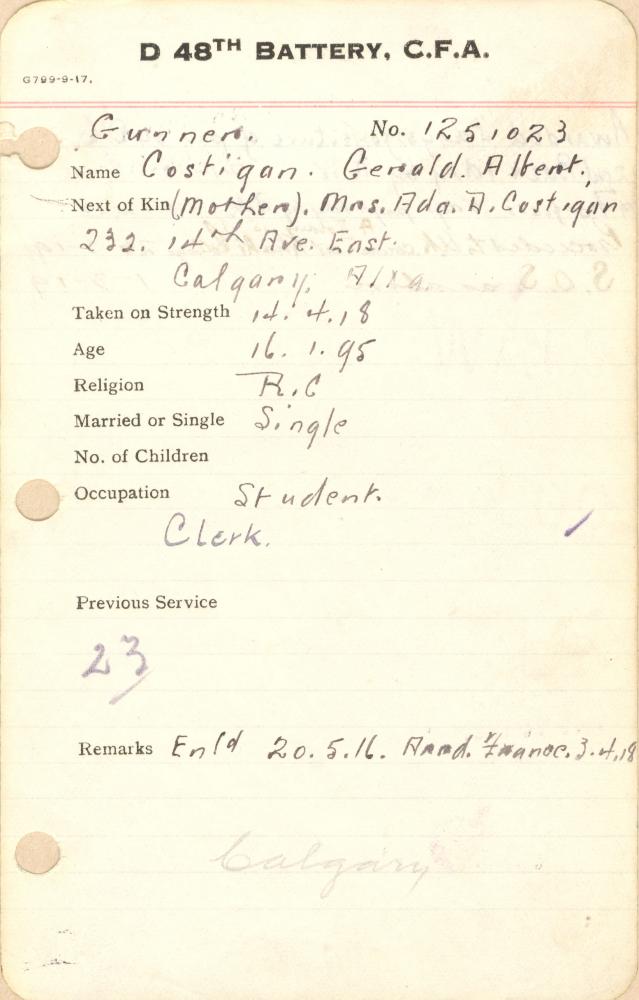 D 48TH BATTERY, C.F.A.
G799-9-17.
Gunner. No. 1251023
Name Costigan. Gerald. Albert.
Next of Kin (Mother). Mrs. Ada. A. Costigan
232. 14th Ave. East.
Calgary, Alta.
Taken on Strength 14.4.18
Age 16.1.95
Religion R.C
Married or Single Single
No. of Children
Occupation Student.
Clerk.
Previous Service
23
Remarks Enld 20.5.16. Arrd. France. 3.4.18
Calgary